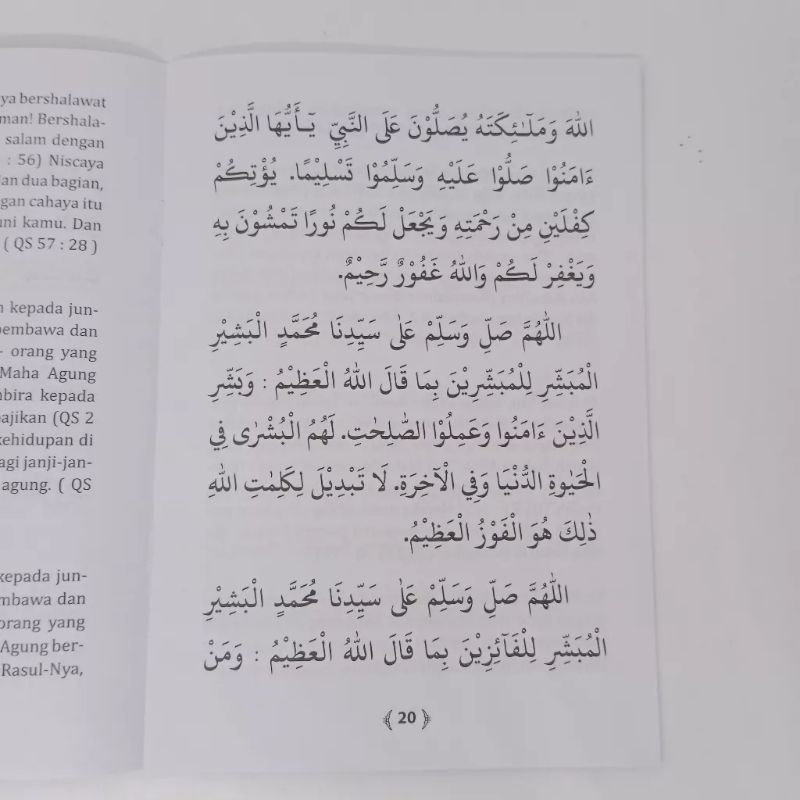 ya bershalawat
man! Bershala-
salam dengan
: 56) Niscaya
an dua bagian,
gan cahaya itu
uni kamu. Dan
( QS 57 : 28 )
kepada jun-
pembawa dan
- orang yang
Maha Agung
mbira kepada
bajikan (QS 2
kehidupan di
agi janji-jan-
agung. ( QS
kepada jun-
mbawa dan
orang yang
Agung ber-
Rasul-Nya,
اللهَ وَمَلَـٰٓئِكَتَهُ يُصَلُّوْنَ عَلَى النَّبِيِّ يَـٰٓأَيُّهَا الَّذِيْنَ
ءَامَنُوْا صَلُّوْا عَلَيْهِ وَسَلِّمُوْا تَسْلِيْمًا. يُؤْتِكُمْ
كِفْلَيْنِ مِنْ رَحْمَتِهِ وَيَجْعَلْ لَكُمْ نُورًا تَمْشُوْنَ بِهِ
وَيَغْفِرْ لَكُمْ وَاللهُ غَفُوْرٌ رَّحِيْمٌ.
اَللّٰهُمَّ صَلِّ وَسَلِّمْ عَلٰى سَيِّدِنَا مُحَمَّدٍ الْبَشِيْرِ
الْمُبَشِّرِ لِلْمُبَشِّرِيْنَ بِمَا قَالَ اللهُ الْعَظِيْمُ : وَبَشِّرِ
الَّذِيْنَ ءَامَنُوا وَعَمِلُوْا الصّٰلِحٰتِ. لَهُمُ الْبُشْرٰى فِي
الْحَيٰوةِ الدُّنْيَا وَفِي الْآخِرَةِ. لَا تَبْدِيْلَ لِكَلِمٰتِ اللهِ
ذٰلِكَ هُوَ الْفَوْزُ الْعَظِيْمُ.
اَللّٰهُمَّ صَلِّ وَسَلِّمْ عَلٰى سَيِّدِنَا مُحَمَّدٍ الْبَشِيْرِ
الْمُبَشِّرِ لِلْفَآئِزِيْنَ بِمَا قَالَ اللهُ الْعَظِيْمُ : وَمَنْ
20